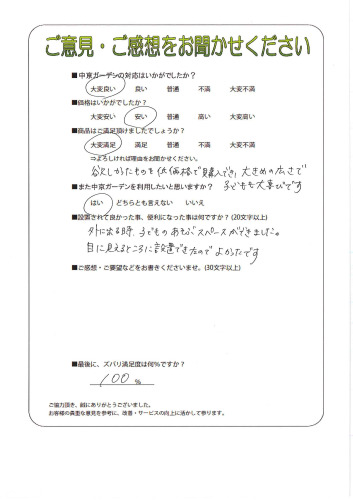 ご意見・ご感想をお聞かせください
■中京ガーデンの対応はいかがでしたか？
大変良い 良い 普通 不満 大変不満
■価格はいかがでしたか？
大変安い 安い 普通 高い 大変高い
■商品はご満足頂けましたでしょうか？
大変満足 満足 普通 不満 大変不満
⇒よろしければ理由をお聞かせください。
欲しかったものを低価格で購入でき、大きめの広さで
子どもも大喜びです
■また中京ガーデンを利用したいと思いますか？
はい どちらとも言えない いいえ
■設置されて良かった事、便利になった事は何ですか？(20文字以上)
外に出る時、子どものあそぶスペースができました。
目に見えるところに設置できたのでよかったです
■ご感想・ご要望などをお書きくださいませ。(30文字以上)
■最後に、ズバリ満足度は何％ですか？
100 ％
ご協力頂き、誠にありがとうございました。
お客様の貴重な意見を参考に、改善・サービスの向上に活かして参ります。